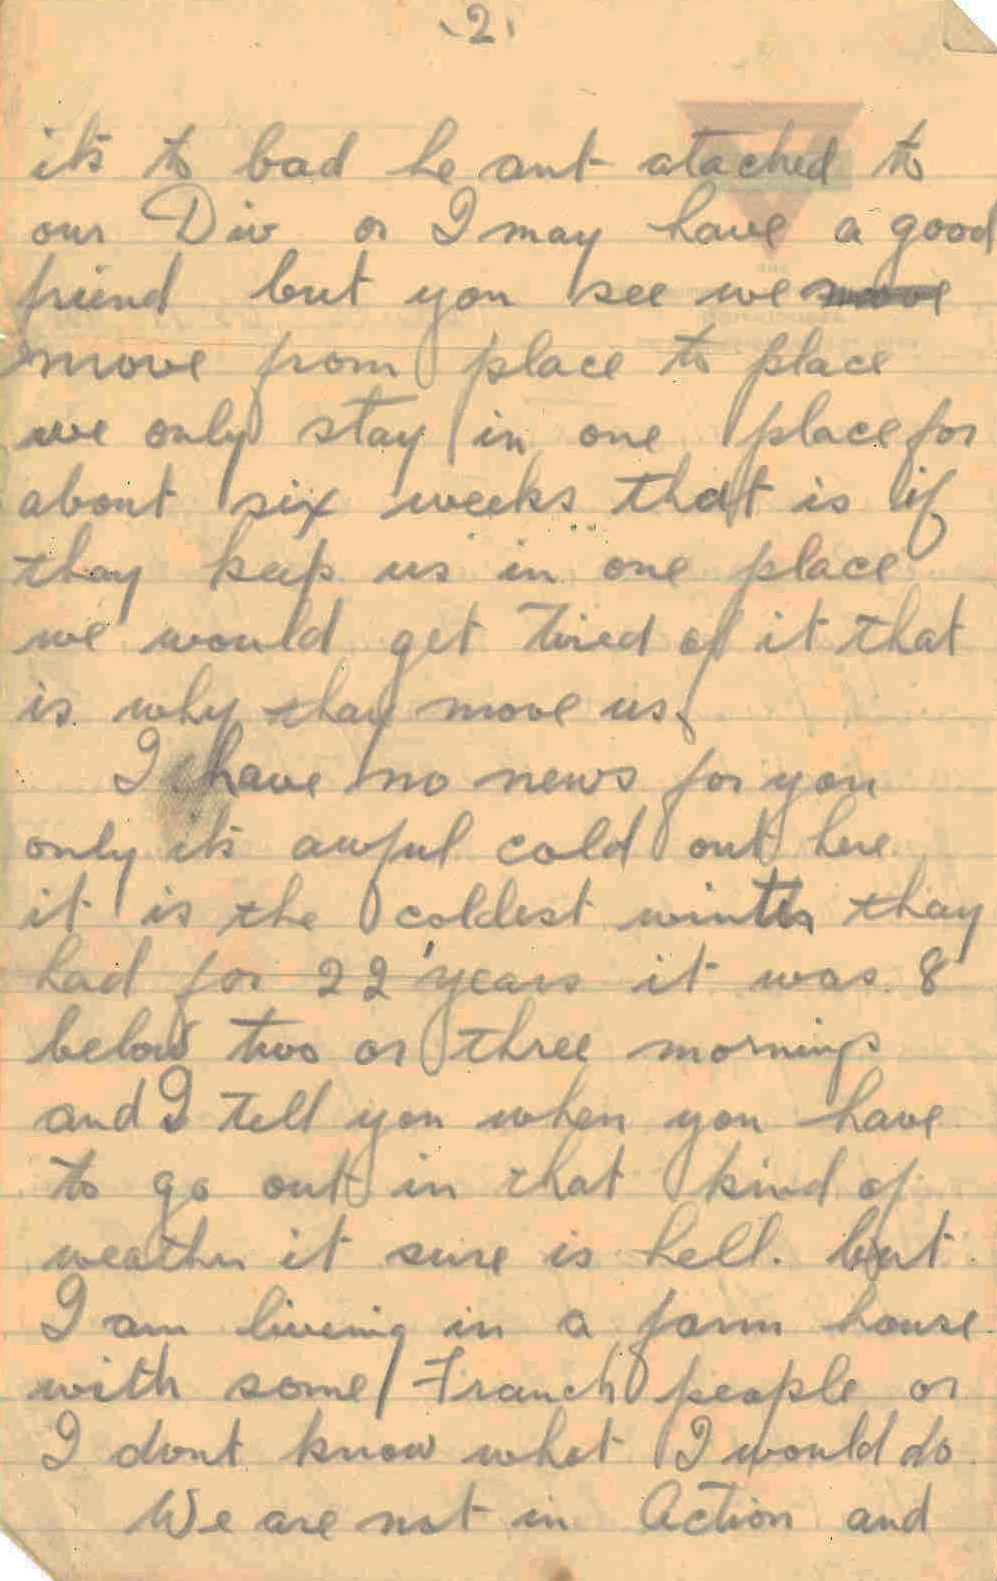 2
its to bad he ant atached to
our Div or I may have a good
friend but you see we move
move from place to place
we only stay in one place for
about six weeks that is if
thay keep us in one place
we would get tired of it that
is why thay move us.
I have no news for you
only its awful cold out here
it is the coldest winter thay
had for 22 years it was 8
below two or three mornings
and I tell you when you have
to go out in that kind of
weather it sure is hell. but
I am liveing in a farm house
with some Franch people or
I dont know what I would do
We are not in Action and